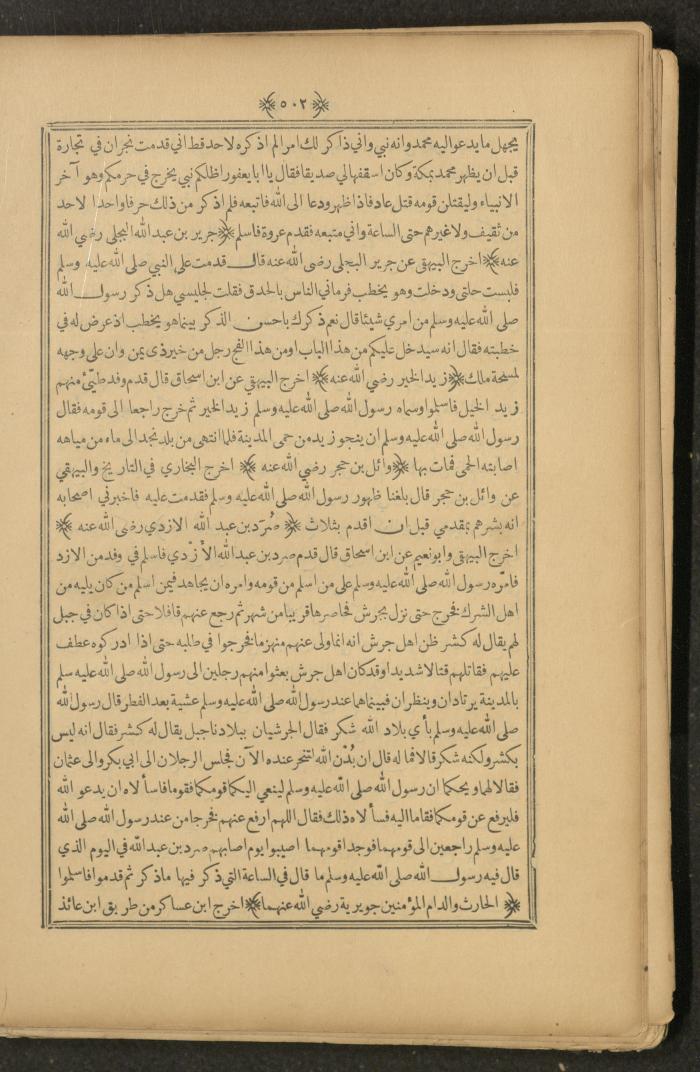 ﴿ ٥٠٢ ﴾
يجهل ما يدعو اليه محمد وانه نبي واني ذاكر لك امرا لم اذكره لاحد قط اني قدمت نجران في تجارة
قبل ان يظهر محمد بمكة وكان اسقفها لي صديقا فقال يا ابا يعفور اظلكم نبي يخرج في حرمكم وهو آخر
الانبياء وليقتلن قومه قتل عاد فاذا ظهر ودعا الى الله فاتبعه فلم اذكر من ذلك حرفا واحدا لاحد
من ثقيف ولا غيرهم حتى الساعة واني متبعه فقدم عروة فاسلم ﴿ جرير بن عبد الله البجلي رضي الله
عنه ﴾ اخرج البيهقي عن جرير البجلي رضى الله عنه قال قدمت على النبي صلى الله عليه وسلم
فلبست حلتى ودخلت وهو يخطب فرماني الناس بالحدق فقلت لجليسي هل ذكر رسول الله
صلى الله عليه وسلم من امري شيئا قال نعم ذكرك باحسن الذكر بينما هو يخطب اذ عرض له في
خطبته فقال انه سيدخل عليكم من هذا الباب او من هذا الفج رجل من خير ذى يمن وان على وجهه
لمسحة ملك ﴿ زيد الخير رضي الله عنه ﴾ اخرج البيهقي عن ابن اسحاق قال قدم وفد طيّئ منهم
زيد الخيل فاسلموا وسماه رسول الله صلى الله عليه وسلم زيد الخير ثم خرج راجعا الى قومه فقال
رسول الله صلى الله عليه وسلم ان ينجو زيد من حمى المدينة فلما انتهى من بلد نجد الى ماء من مياهه
اصابته الحمى فمات بها ﴿ وائل بن حجر رضي الله عنه ﴾ اخرج البخاري في التاريخ والبيهقي
عن وائل بن حجر قال بلغنا ظهور رسول الله صلى الله عليه وسلم فقدمت عليه فاخبرني اصحابه
انه بشرهم بمقدمي قبل ان اقدم بثلاث ﴿ صُرَد بن عبد الله الازدي رضى الله عنه ﴾
اخرج البيهقي وابو نعيم عن ابن اسحاق قال قدم صرد بن عبد الله الأزدي فاسلم في وفد من الازد
فامّره رسول الله صلى الله عليه وسلم على من اسلم من قومه وامره ان يجاهد فيمن اسلم من كان يليه من
اهل الشرك فخرج حتى نزل بجرش فحاصرها قريبا من شهر ثم رجع عنهم قافلا حتى اذا كان في جبل
لهم يقال له كشر ظن اهل جرش انه انما ولى عنهم منهزما فخرجوا في طلبه حتى اذا ادركوه عطف
عليهم فقاتلهم قتالا شديدا وقد كان اهل جرش بعثوا منهم رجلين الى رسول الله صلى الله عليه وسلم
بالمدينة يرتادان وينظران فبينماهما عند رسول الله صلى الله عليه وسلم عشية بعد الفطر قال رسول الله
صلى الله عليه وسلم بأي بلاد الله شكر فقال الجرشيان ببلادنا جبل يقال له كشر فقال انه ليس
بكشر ولكنه شكر قالا فما له قال ان بُدْن الله لتنحر عنده الآن فجلس الرجلان الى ابي بكر والى عثمان
فقالا لهما ويحكما ان رسول الله صلى الله عليه وسلم لينعي اليكما قومكما فقوما فاسألاه ان يدعو الله
فليرفع عن قومكما فقاما اليه فسألاه ذلك فقال اللهم ارفع عنهم فخرجا من عند رسول الله صلى الله
عليه وسلم راجعين الى قومهما فوجدا قومهما اصيبوا يوم اصابهم صرد بن عبد الله في اليوم الذي
قال فيه رسول الله صلى الله عليه وسلم ما قال في الساعة التي ذكر فيها ما ذكر ثم قدموا فاسلموا
﴿ الحارث والد ام المؤمنين جويرية رضي الله عنهما ﴾ اخرج ابن عساكر من طريق ابن عائذ